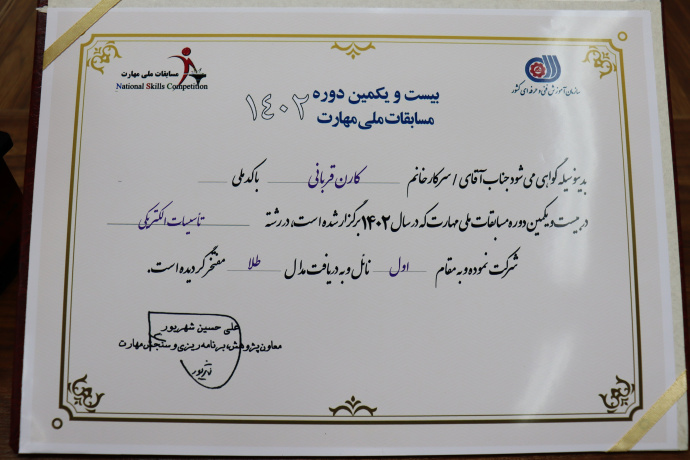 مسابقات ملی مهارت
National Skills Competition
سازمان آموزش فنی و حرفه ای کشور
بیست و یکمین دوره
مسابقات ملی مهارت
۱۴۰۲
بدینوسیله گواهی می شود جناب آقای / سرکار خانم کارن قربانی با کد ملی
در بیست و یکمین دوره مسابقات ملی مهارت که در سال ۱۴۰۲ برگزار شده است، در رشته تأسیسات الکتریکی
شرکت نموده و به مقام اول نائل و به دریافت مدال طلا مفتخر گردیده است.
علی حسین شهریور
معاون پژوهش، برنامه ریزی و سنجش مهارت